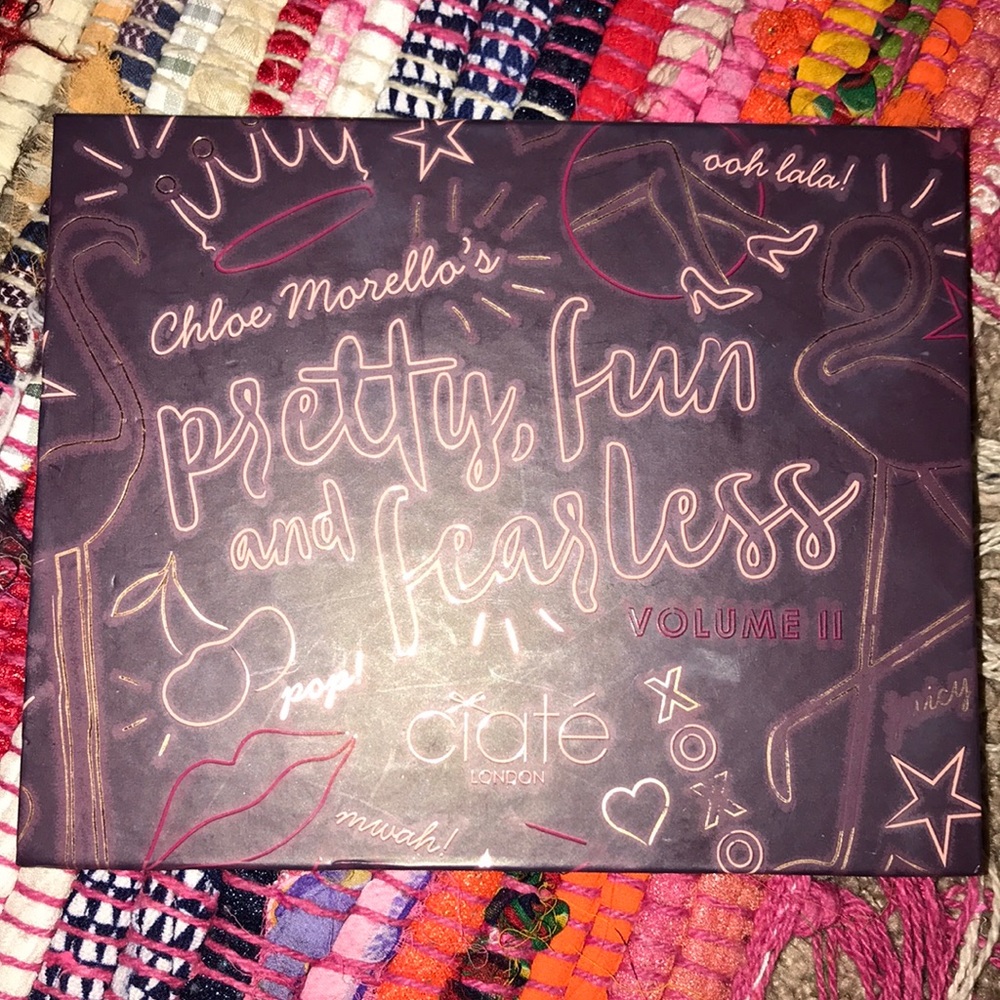 ooh lala!
Chloe Morello's
pretty, fun
and fearless
VOLUME II
pop!
X
O
X
O
juicy
ciaté
LONDON
mwah!